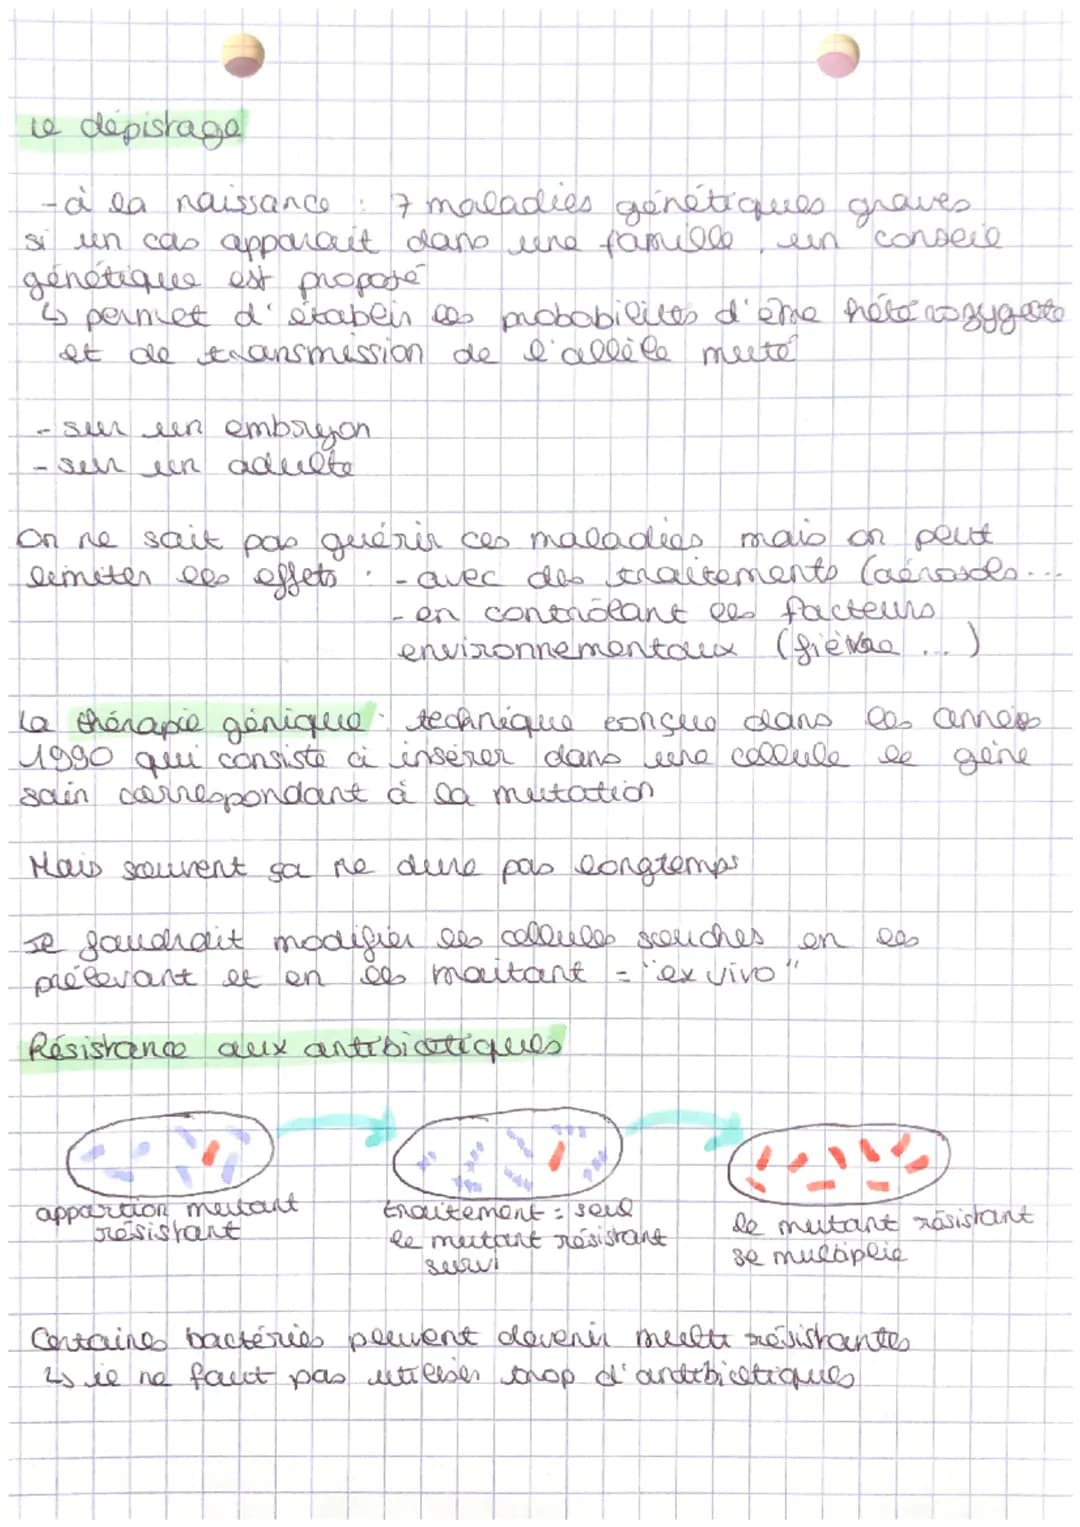 le dépistage
- à la naissance : 7 maladies génétiques graves
si un cas apparait dans une famille, un conseil
génétique est proposé
↳ permet d'établir les probabilités d'être hétérozygote
et de transmission de l'allèle muté
- sur un embryon
- sur un adulte
On ne sait pas guérir ces maladies mais on peut
limiter les effets : - avec des traitements (aérosols...
- en contrôlant les facteurs
environnementaux (fièvre ... )
La thérapie génique : technique conçue dans les années
1990 qui consiste à insérer dans une cellule le gène
sain correspondant à la mutation
Mais souvent ça ne dure pas longtemps
Il faudrait modifier les cellules souches en les
prélevant et en les traitant = "ex vivo"
Résistance aux antibiotiques
apparition mutant
résistant
traitement = seul
le mutant résistant
survi
le mutant résistant
se multiplie
Certaines bactéries peuvent devenir multi résistantes
↳ il ne faut pas utiliser trop d'antibiotiques